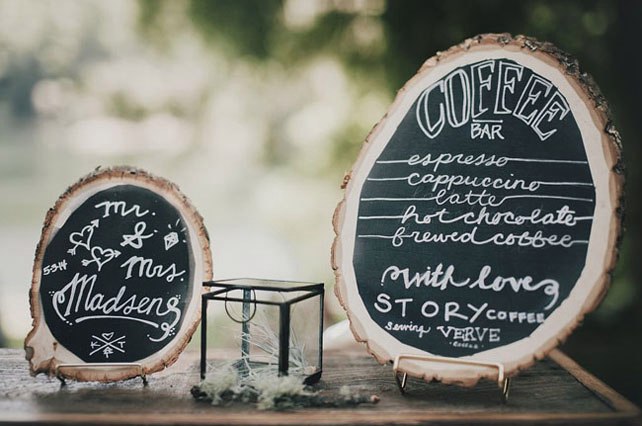 mr.
&
5·3·14 mrs
Madsen
COFFEE
BAR
espresso
cappuccino
latte
hot chocolate
brewed coffee
with love
STORY COFFEE
Serving VERVE
Coffee